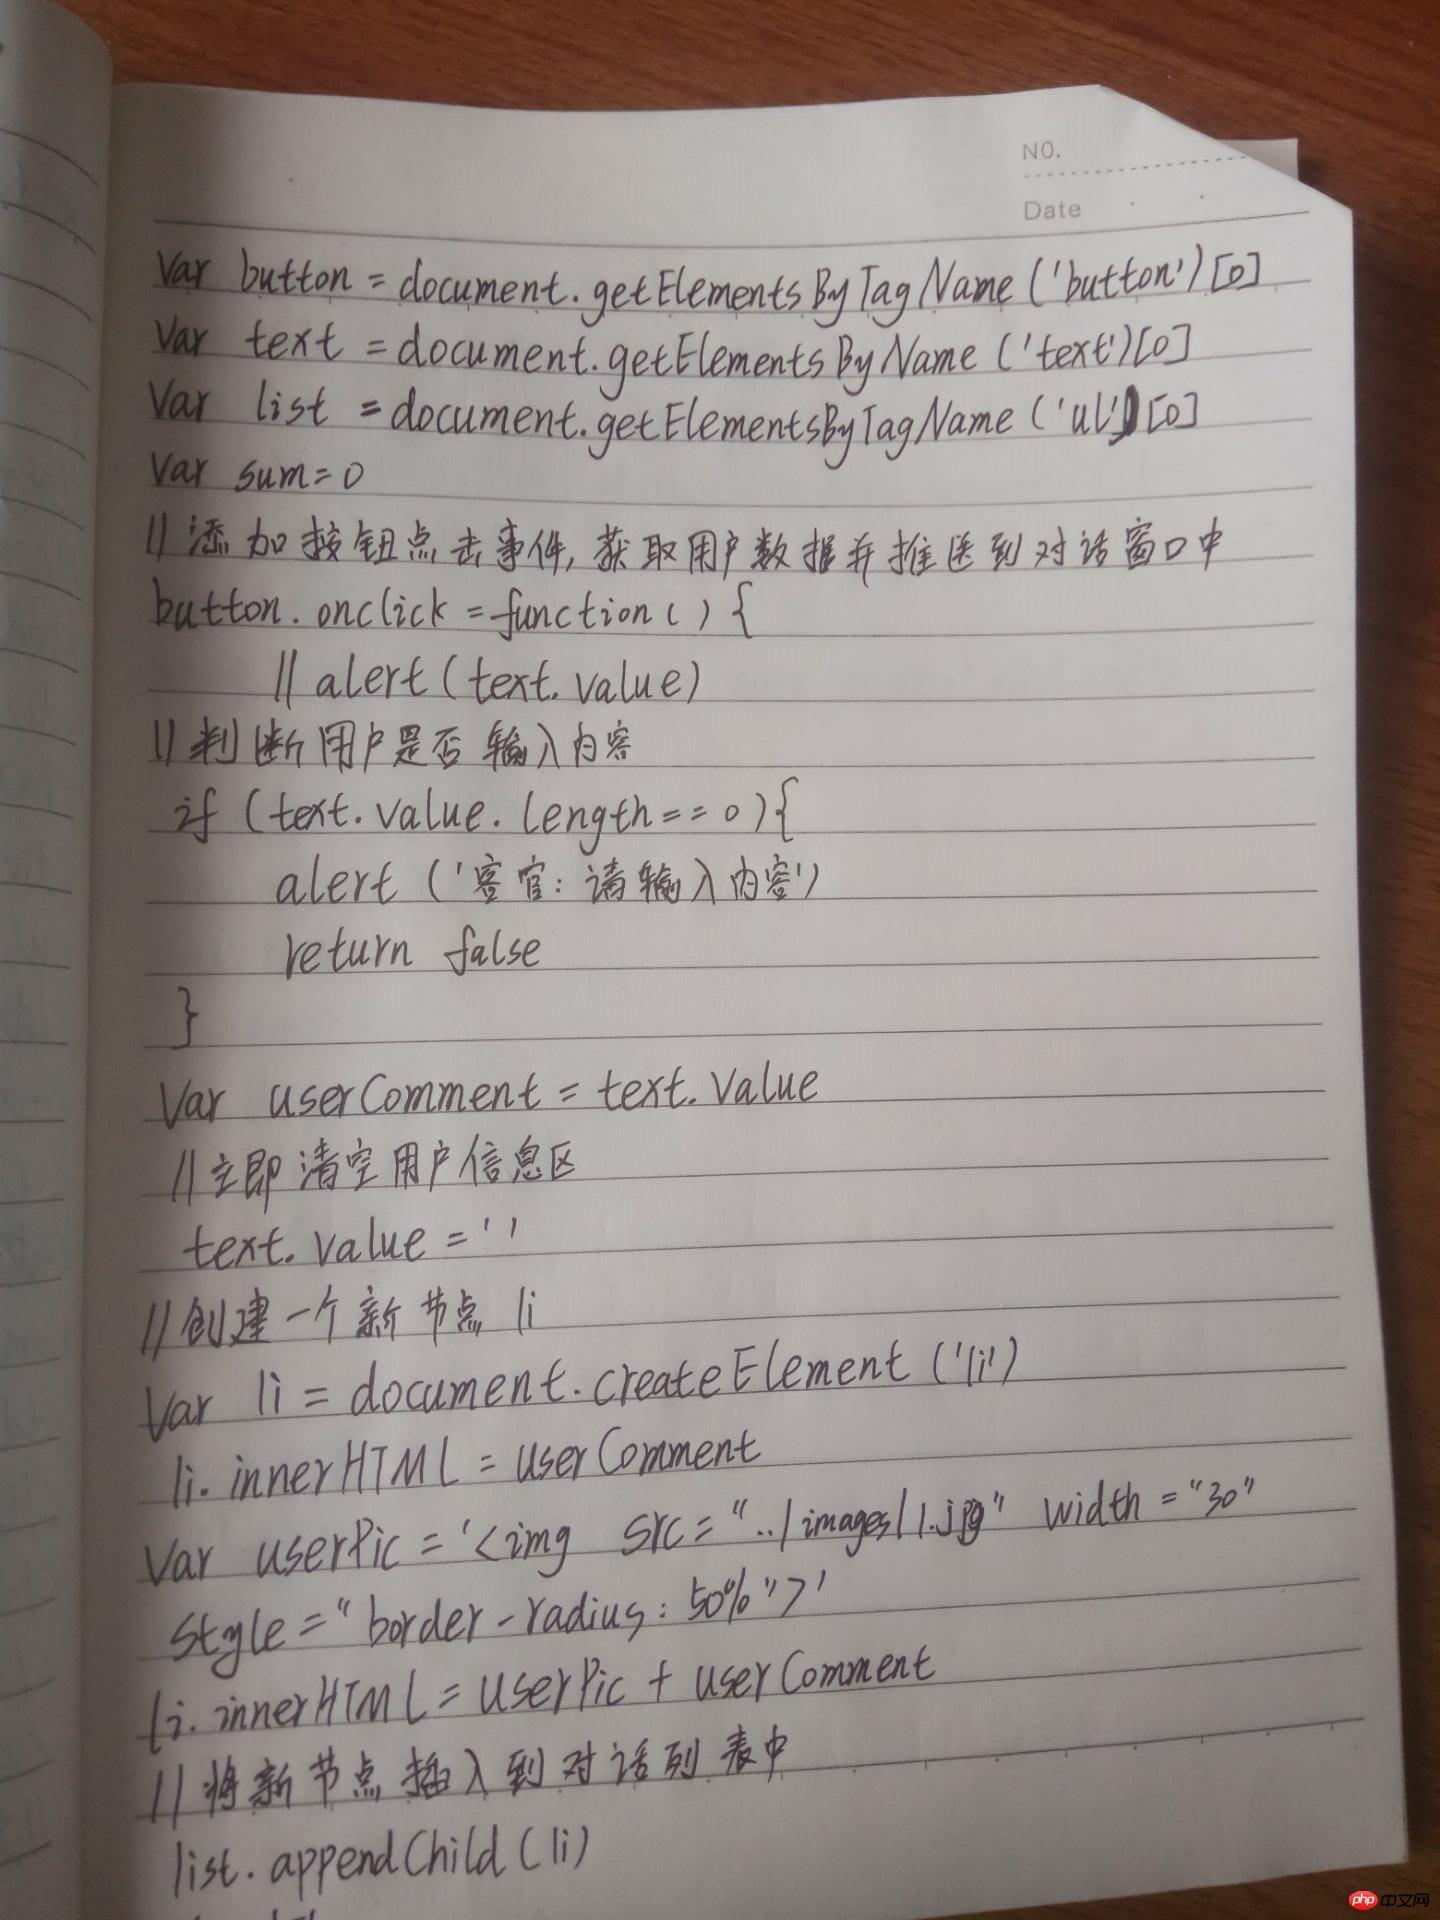 NO.
Date
Var button = document.getElementsByTagName('button')[0]
Var text = document.getElementsByName('text')[0]
Var list = document.getElementsByTagName('ul')[0]
Var sum=0
//添加按钮点击事件,获取用户数据并推送到对话窗口中
button.onclick=function(){
//alert(text.value)
//判断用户是否输入内容
if (text.value.length==0){
alert('客官:请输入内容')
return false
}
Var userComment = text.value
//立即清空用户信息区
text.value=''
//创建一个新节点 li
Var li = document.createElement('li')
li.innerHTML = userComment
Var userPic = '<img src="../images/1.jpg" width="30"
style="border-radius:50%">'
li.innerHTML=userPic + userComment
//将新节点插入到对话列表中
list.appendChild(li)
php 中文网